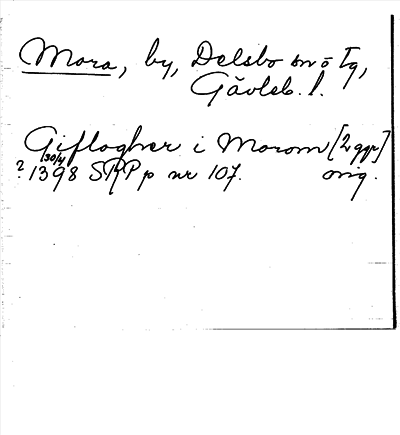 Mora, by, Delsbo sn o tg,
Gävleb. l.
Giflogher i Morom [2 ggr]
30/4
? 1398 SRP p nr 107. orig.